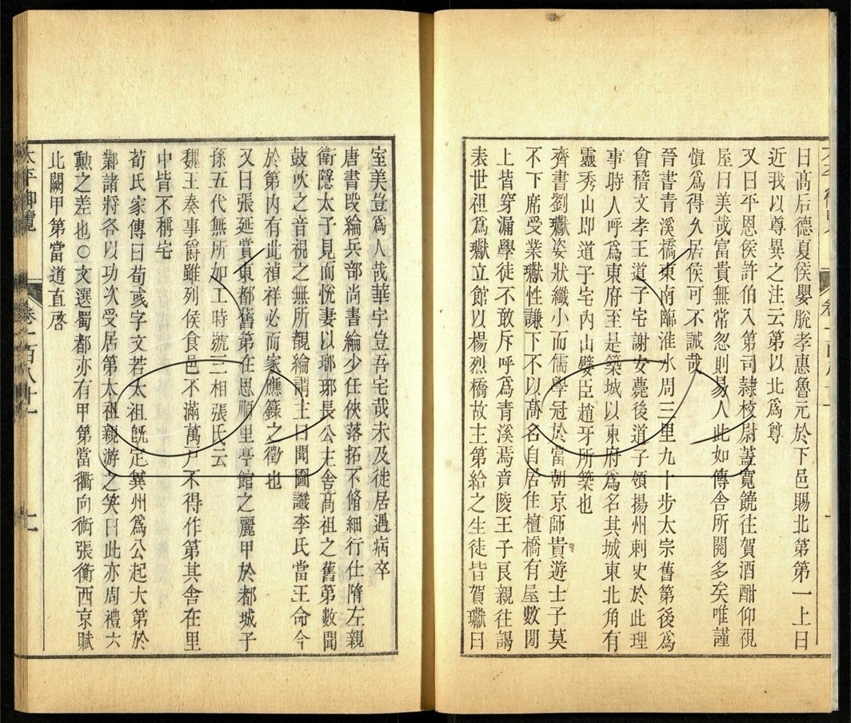 曰高后德夏侯嬰脫孝惠魯元於下邑賜北第第一上曰
近我以尊異之注云第以北爲尊
又曰平恩侯許伯入第司隷校尉蓋寬饒往賀酒酣仰視
屋曰美哉富貴無常忽則易人此如傳舍所閱多矣唯謹
愼爲得久居侯可不誡哉
晉書靑溪橋東南臨淮水周三里九十步太宗舊第後爲
會稽文孝王道子宅謝安薨後道子領揚州刺史於此理
事時人呼爲東府至是築城以東府爲名其城東北角有
靈秀山卽道子宅內山嬖臣趙牙所築也
齊書劉瓛姿狀纖小而儒學冠於當朝京師貴遊士子莫
不下席受業瓛性謙下不以高名自居住檀橋有屋數閒
上皆穿漏學徒不敢斥呼爲靑溪焉竟陵王子良親往謁
表世祖爲瓛立館以楊烈橋故主第給之生徒皆賀瓛曰
室美豈爲人哉華宇豈吾宅哉未及徙居遇病卒
唐書段綸兵部尚書綸少任俠落拓不脩細行仕隋左親
衛隱太子見而悅妻以瑯琊長公主舍高祖之舊第數聞
鼓吹之音視之無所覩綸謂主曰聞圖讖李氏當王命今
於第內有此禎祥必而家應籙之徵也
又曰張延賞東都舊第在思順里亭館之麗甲於都城子
孫五代無所加工時號三相張氏云
魏王奏事爵雖列侯食邑不滿萬戸不得作第其舍在里
中皆不稱宅
荀氏家傳曰荀彧字文若太祖旣定冀州爲公起大第於
鄴諸將各以功次受居第太祖親游之笑曰此亦周禮六
勲之差也○文選蜀都亦有甲第當衢向術張衡西京賦
北闕甲第當道直啓
太平御覽 卷一百八十一 十一